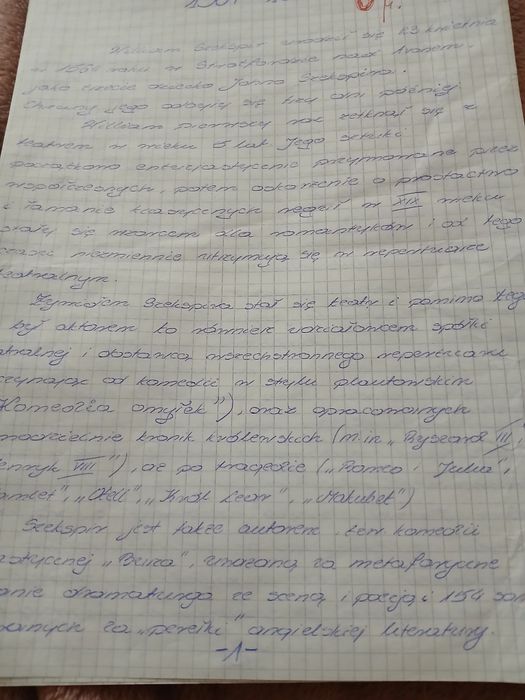 William Szekspir urodził się 23 kwietnia
w 1564 roku w Stratfordzie nad Avonem.
jako trzecie dziecko Johna Szekspira.
Chrzciny jego odbyły się trzy dni później
William pierwszy raz zetknął się z
teatrem w wieku 5 lat. Jego sztuki
początkowo entuzjastycznie przyjmowane przez
współczesnych, potem oskarżenie o prostactwo
i łamanie klasycznych reguł w XIX wieku
stały się wzorcem dla romantyków i od tego
czasu niezmiennie utrzymują się w repertuarze
teatralnym.
Żywiołem Szekspira stał się teatr i pomimo tego
był aktorem to również udziałowcem spółki
atralnej i dostawcą wszechstronnego repertuaru
czynając od komedii w stylu plautowskim
Komedia omyłek"), oraz opracowanych
kronik królewskich (m.in „Ryszard III,
enryk VIII"), aż po tragedie („Romeo i Julia",
amlet", „Otell", „Król Lear", „Makubet")
Szekspir jest także autorem tzw komedii
stycznej „Burza", uważaną za metaforyczne
anie dramaturga ze sceną i poezją i 154 son
wanych za „perełki" angielskiej literatury.
-1-